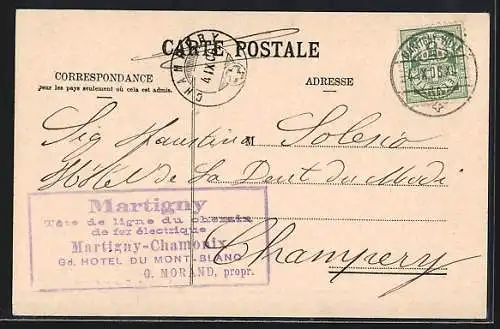 CARTE POSTALE
CORRESPONDANCE
pour les pays seulement où cela est admis.
ADRESSE
CHAMPERY
4.IX.0
M
Sig Faustino Solesio
Hôtel de la Dent du Midi
Champery
Martigny
Tête de ligne du chemin
de fer électrique
Martigny-Chamonix
Gd. HOTEL DU MONT-BLANC
G. MORAND, propr.